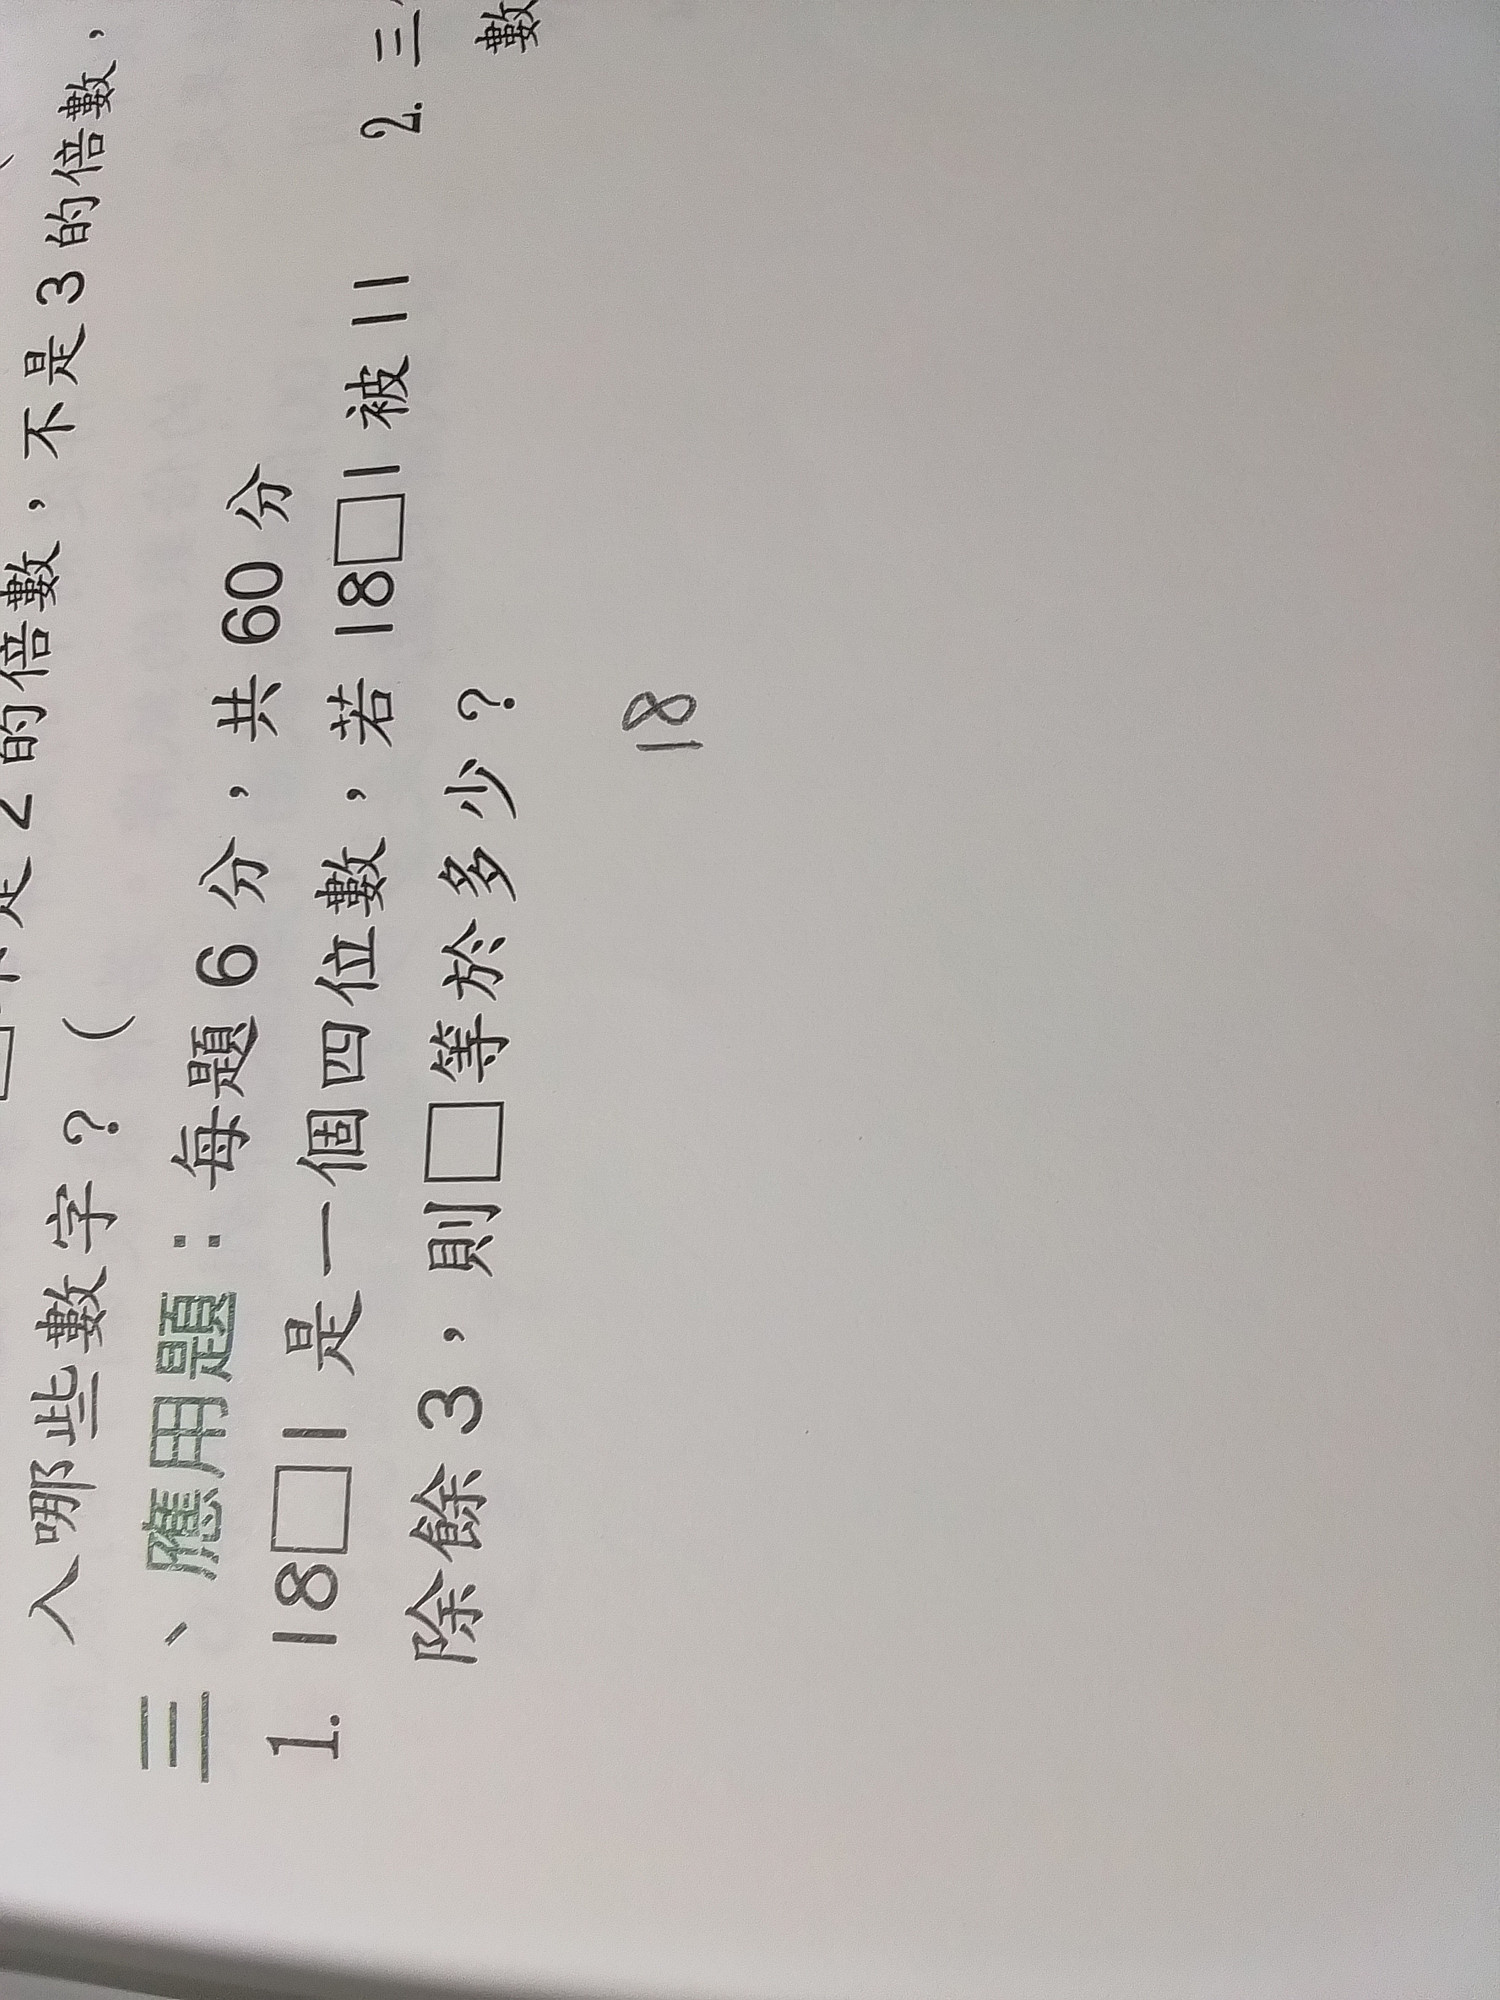 2的倍數，不是3的倍數，
入哪些數字？（
三、應用題：每題6分，共60分
1. 18□1 是一個四位數，若 18□1 被 11
除餘3，則□等於多少？
18
2. 三
數